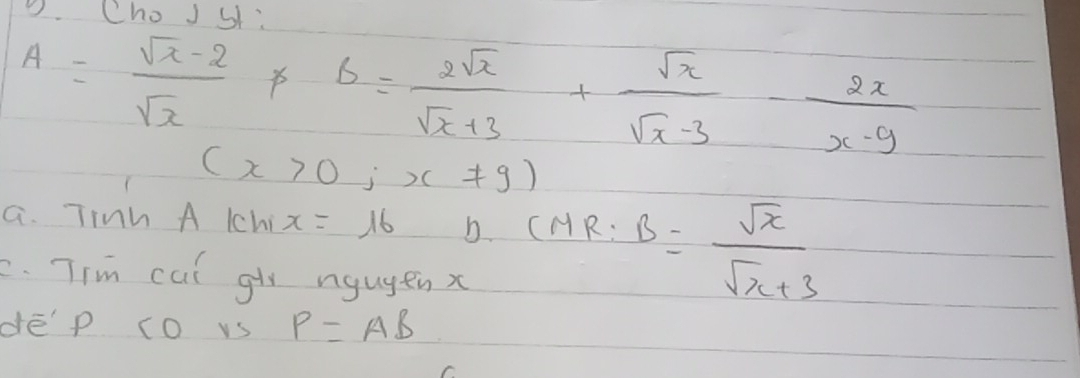 b. Cho 2 bt:
A = (√x - 2)/√x ; B = 2√x/(√x + 3) + √x/(√x - 3) - 2x/(x - 9)
(x > 0 ; x ≠ 9)
a. Tính A khi x = 16 b. CMR: B = √x/(√x + 3)
c. Tìm các gtr nguyên x
để P < 0 vs P = AB